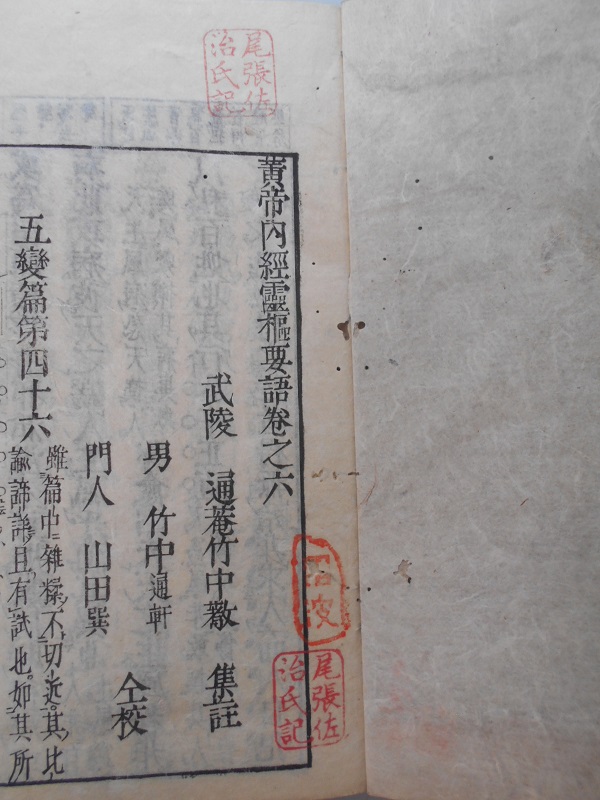 尾張佐
治氏記
黄帝内經靈樞要語卷之六
武陵 通菴竹中敬 集註
男 竹中通軒
門人 山田巽
仝校
五變篇第四十六
雖篇中雜糅不切近其比
諭諦語且有試也如其所
尾張佐
治氏記